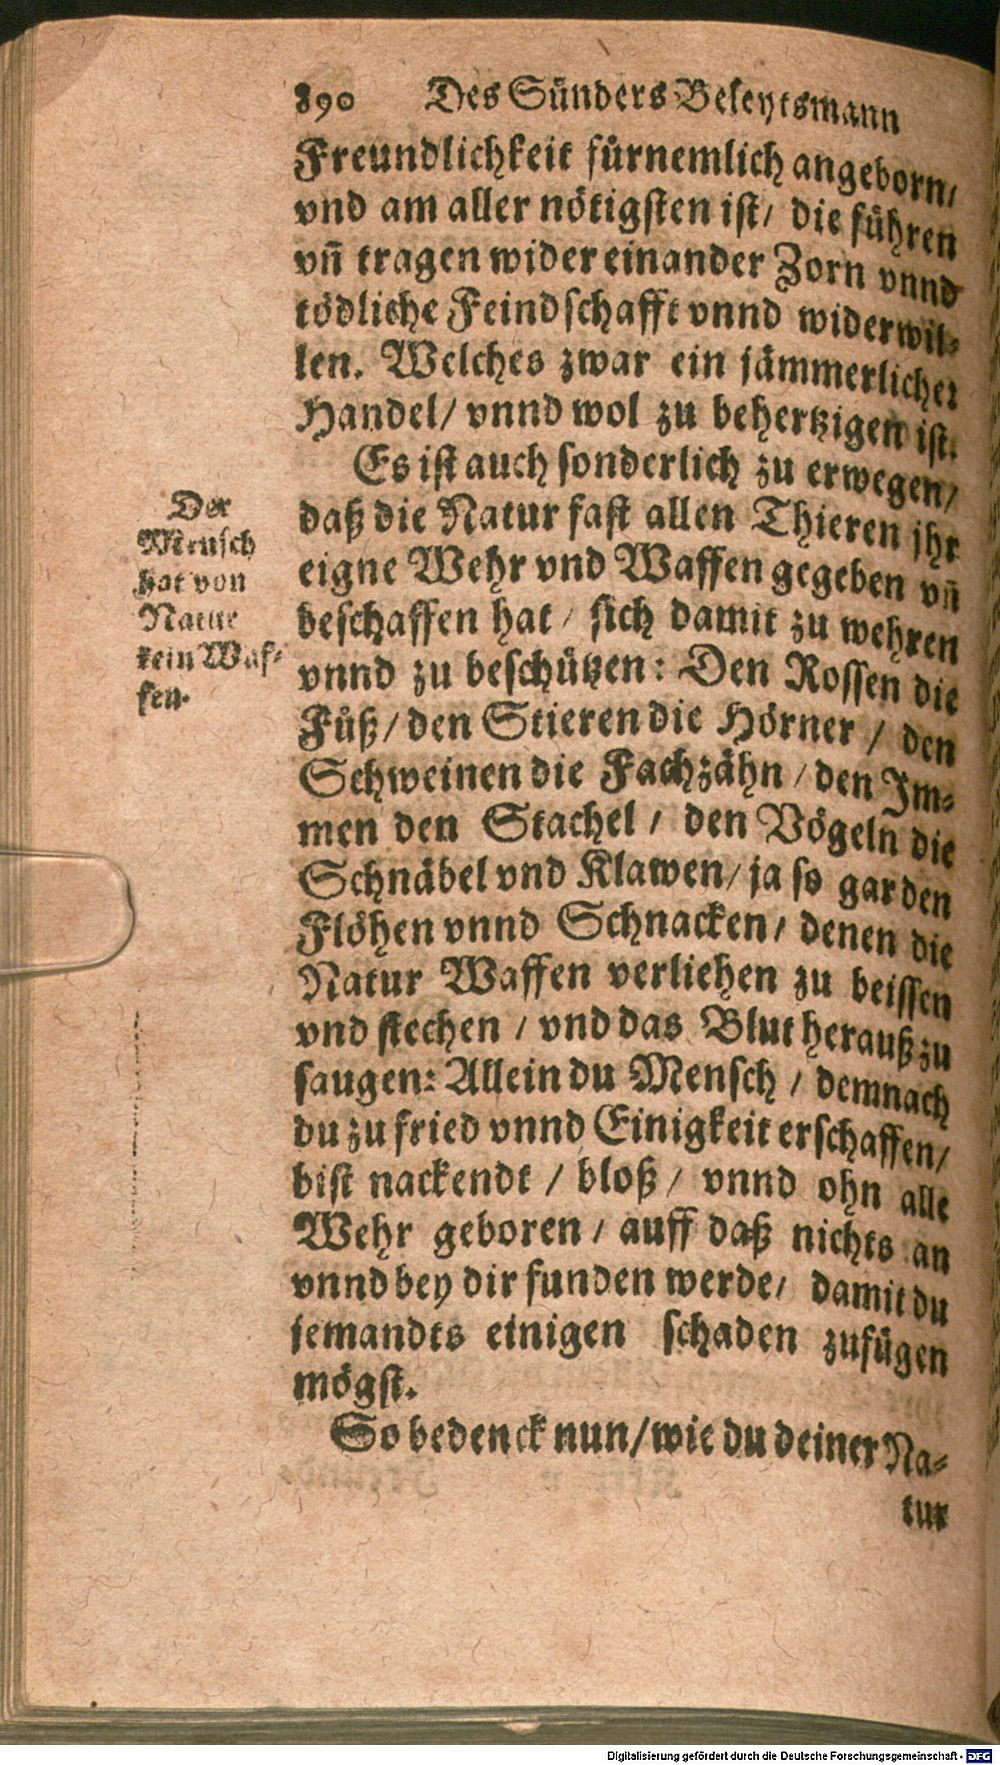 890 Des Sünders Beleytsmann
Freundlichkeit fürnemlich angeborn/
vnd am aller nötigsten ist/ die führen
vñ tragen wider einander Zorn vnnd
tödliche Feindschafft vnnd widerwil-
len. Welches zwar ein jämmerlicher
Handel/ vnnd wol zu behertzigen ist.
Es ist auch sonderlich zu erwegen/
daß die Natur fast allen Thieren jhr
eigne Wehr vnd Waffen gegeben vñ
beschaffen hat/ sich damit zu wehren
vnnd zu beschützen: Den Rossen die
Füß/ den Stieren die Hörner/ den
Schweinen die Fachzähn/ den Im-
men den Stachel/ den Vögeln die
Schnäbel vnd Klawen/ ja so gar den
Flöhen vnnd Schnacken/ denen die
Natur Waffen verliehen zu beissen
vnd stechen/ vnd das Blut herauß zu
saugen: Allein du Mensch/ demnach
du zu fried vnnd Einigkeit erschaffen/
bist nackendt/ bloß/ vnnd ohn alle
Wehr geboren/ auff daß nichts an
vnnd bey dir funden werde/ damit du
jemandts einigen schaden zufügen
mögst.
So bedenck nun/ wie du deiner Na-
tur
Der
Mensch
hat von
Natur
kein Waf-
fen.
Digitalisierung gefördert durch die Deutsche Forschungsgemeinschaft - DFG